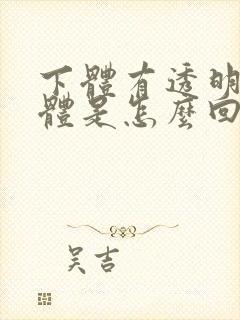 下體有透明
體是怎麼回
吴吉